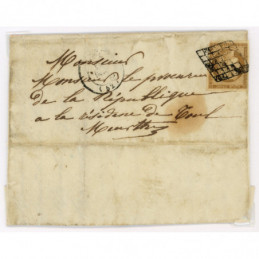 Monsieur
Monsieur le procureur
de la République
a la résidence de Toul
Meurthe